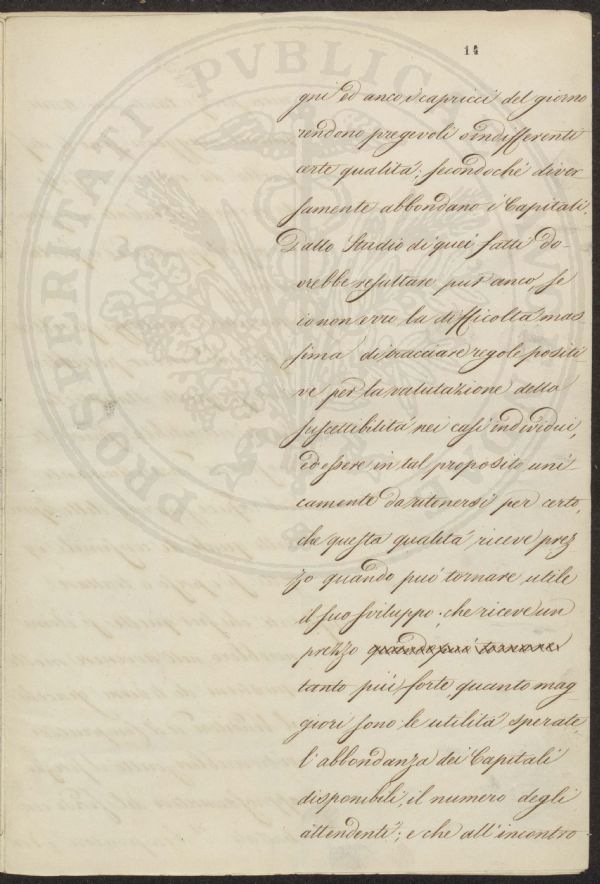 14
gni ed anco, i capricci del giorno
rendono pregevoli o indifferenti
certe qualità; secondochè diver
samente abbondano i Capitali.
Dallo Studio di quei fatti do-
vrebbe resultare pur anco, se
io non erro, la difficoltà mas
sima di tracciare regole positi
ve per la valutazione della
suscettibilità nei casi individui,
ed essere in tal proposito uni-
camente da ritenersi per certo,
che questa qualità riceve prez
zo quando può tornare utile
il suo sviluppo; che riceve un
prezzo quando può tornare
tanto più forte, quanto mag
giori sono le utilità sperate,
l'abbondanza dei Capitali
disponibili, il numero degli
attendenti; e che all'incontro
PROSPERITATI PVBLICAE